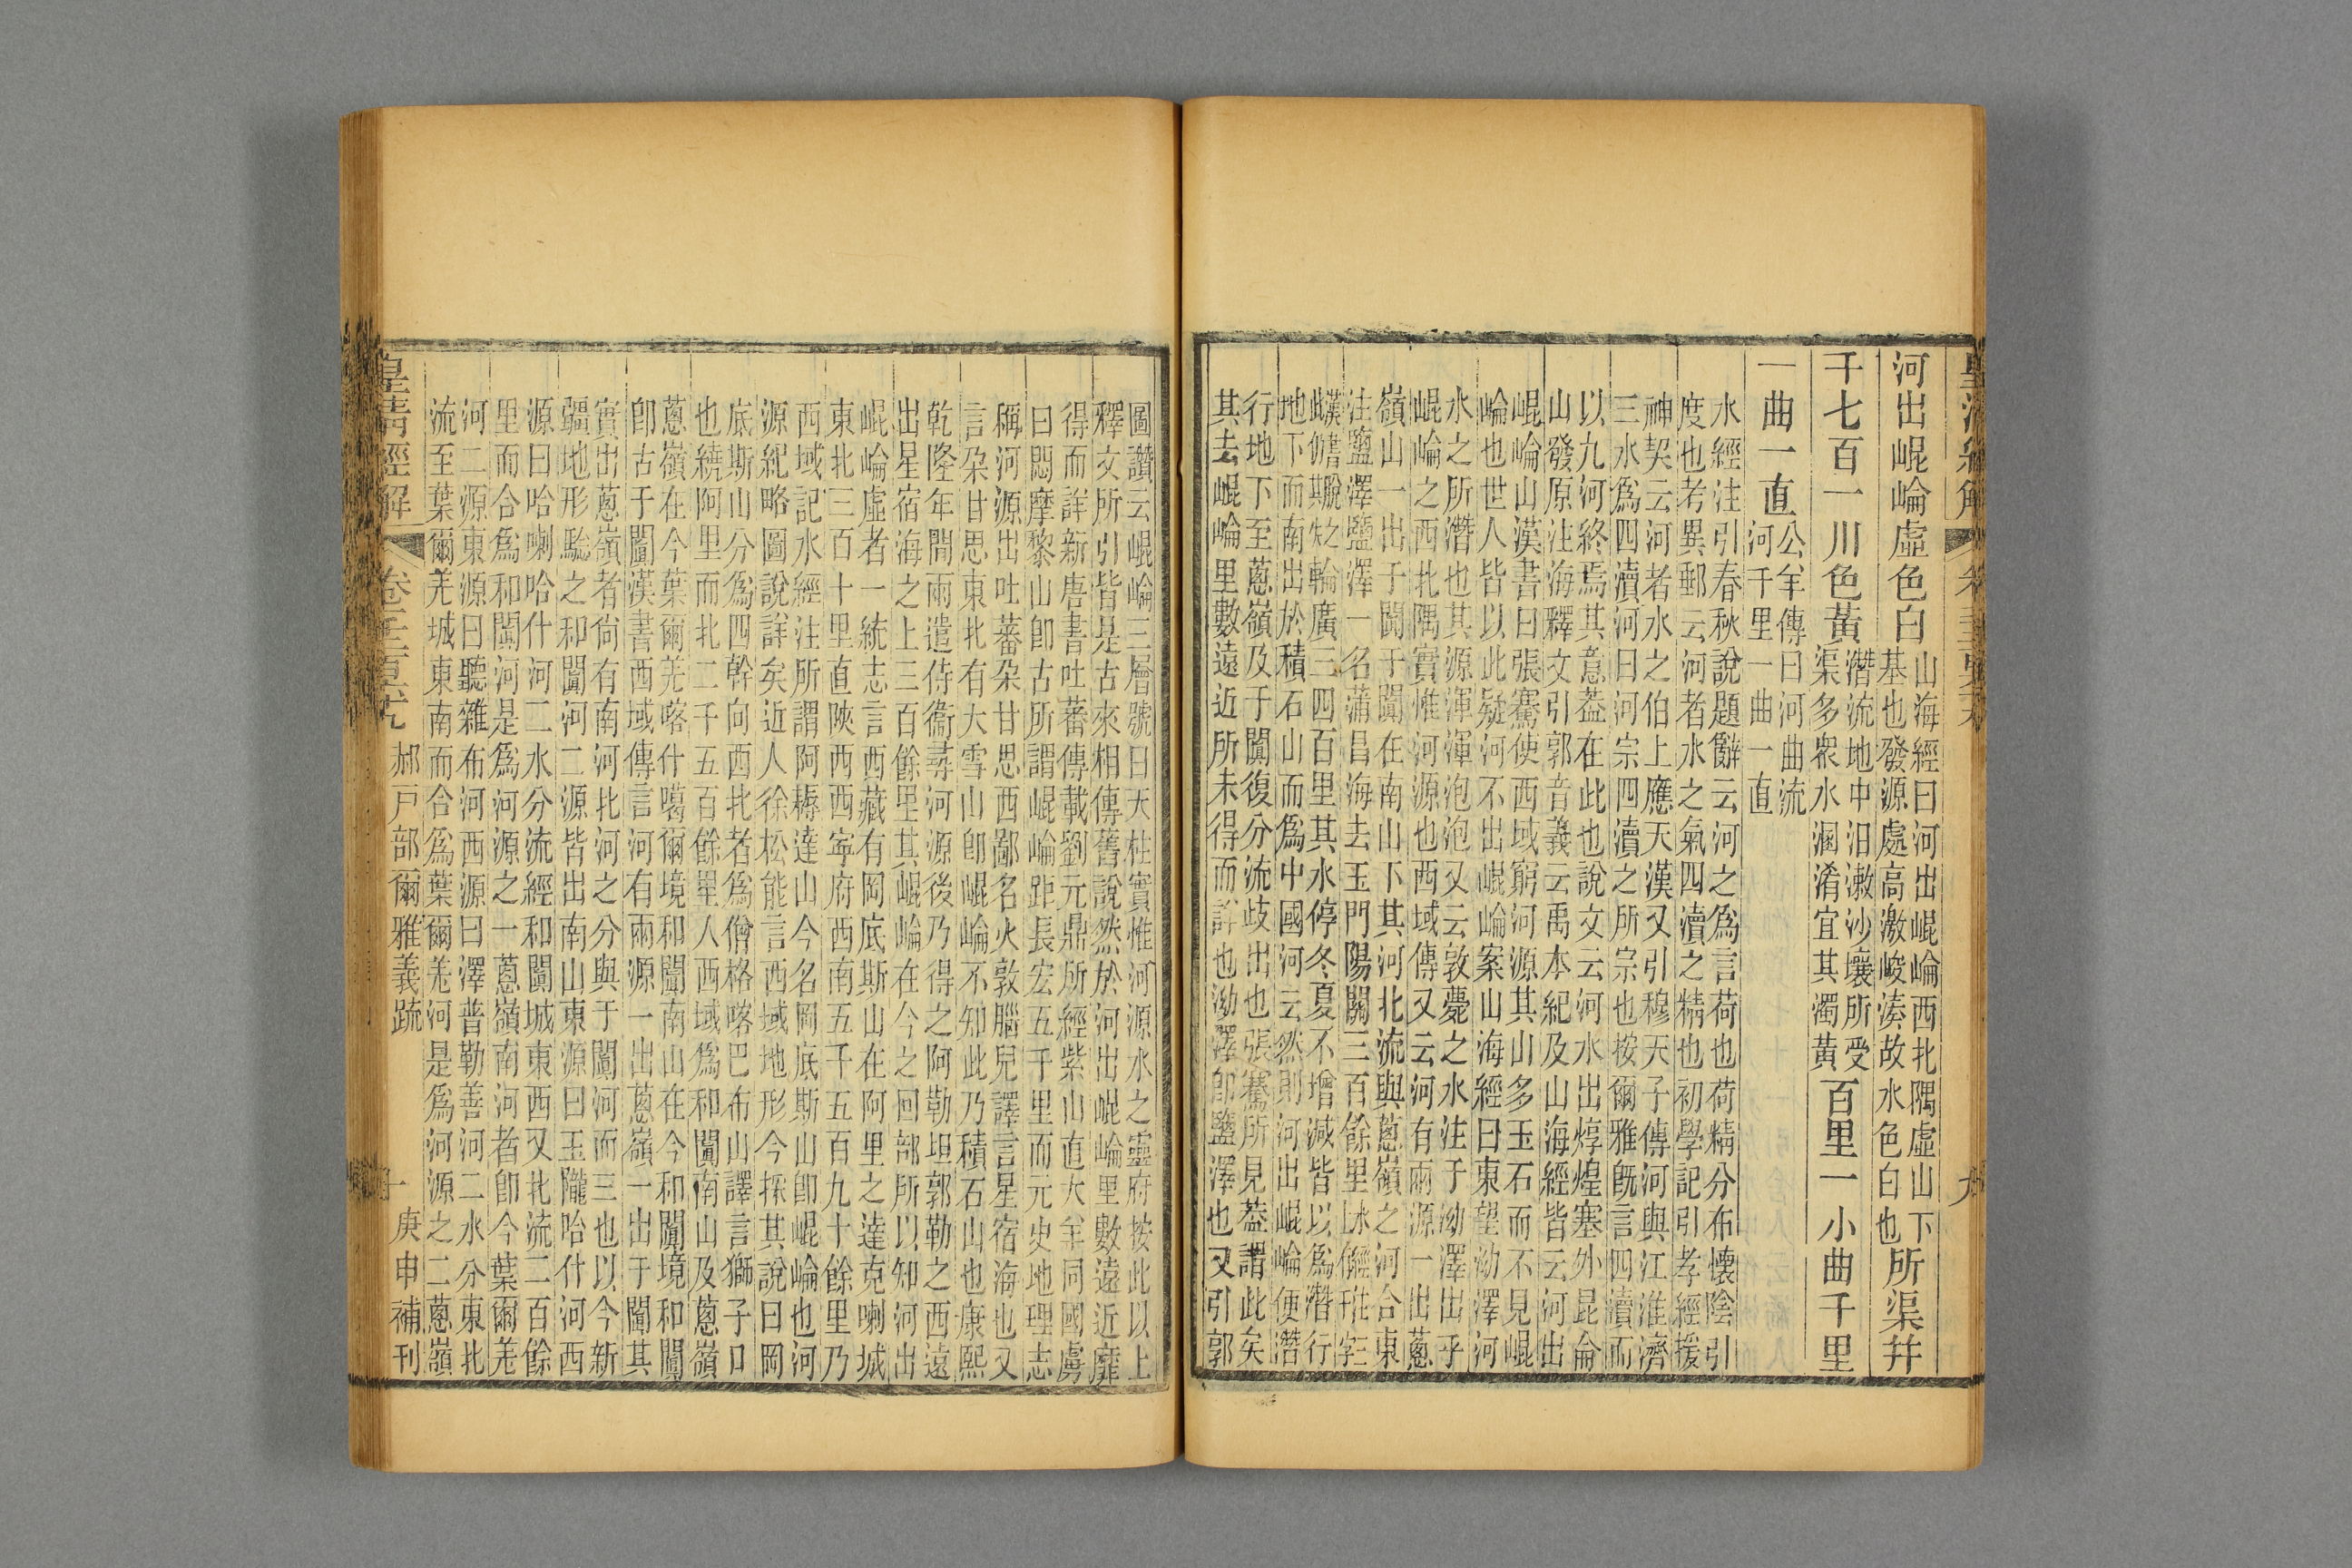 河出崐崘虛色白山海經曰河出崐崘西北隅虛山下基也發源處高激峻湊故水色白也所渠幷
千七百一川色黃潛流地中汩漱沙壤所受渠多衆水溷淆宜其濁黃百里一小曲千里
一曲一直公羊傳曰河曲流河千里一曲一直
水經注引春秋說題辭云河之爲言荷也荷精分布懷陰引
度也考異郵云河者水之氣四瀆之精也初學記引孝經援
神契云河者水之伯上應天漢又引穆天子傳河與江淮濟
三水爲四瀆河曰河宗四瀆之所宗也按爾雅旣言四瀆而
以九河終焉其意葢在此也說文云河水出焞煌塞外昆侖
山發原注海釋文引郭音義云禹本紀及山海經皆云河出
崐崘山漢書曰張騫使西域窮河源其山多玉石而不見崐
崘也世人皆以此疑河不出崐崘案山海經曰東望泑澤河
水之所潛也其源渾渾泡泡又云敦薨之水注于泑澤出乎
崐崘之西北隅實惟河源也西域傳又云河有兩源一出蔥
嶺山一出于闐于闐在南山下其河北流與蔥嶺之河合東
注鹽澤鹽澤一名蒲昌海去玉門陽關三百餘里
輪廣三四百里其水停冬夏不增減皆以爲潛行
地下而南出於積石山而爲中國河云然則河出崐崘便潛
行地下至蔥嶺及于闐復分流歧出也張騫所見葢謂此矣
其去崐崘里數遠近所未得而詳也泑澤卽鹽澤也又引郭
圖讚云崐崘三層號曰天柱實惟河源水之靈府按此以上
釋文所引皆是古來相傳舊說然於河出崐崘里數遠近靡
得而詳新唐書吐蕃傳載劉元鼎所經紫山直大羊同國虜
曰悶摩黎山卽古所謂崐崘距長宏五千里而元史地理志
稱河源出吐蕃朶甘思西鄙名火敦腦兒譯言星宿海也又
言朶甘思東北有大雪山卽崐崘不知此乃積石山也康熙
乾隆年間兩遣侍衞尋河源後乃得之阿勒坦郭勒之西遠
出星宿海之上三百餘里其崐崘在今之回部所以知河出
崐崘虛者一統志言西藏有岡底斯山在阿里之達克喇城
東北三百十里直陝西西寧府西南五千五百九十餘里乃
西域記水經注所謂阿耨達山今名岡底斯山卽崐崘也河
源紀略圖說詳矣近人徐松能言西域地形今採其說曰岡
底斯山分爲四幹向西北者爲僧格喀巴布山譯言獅子口
也繞阿里而北二千五百餘里人西域爲和闐南山及蔥嶺
蔥嶺在今葉爾羌喀什噶爾境和闐南山在今和闐境和闐
卽古于闐漢書西域傳言河有兩源一出蔥嶺一出于闐其
實出蔥嶺者尙有南河北河之分與于闐河而三也以今新
疆地形驗之和闐河二源皆出南山東源曰玉隴哈什河西
源曰哈喇哈什河二水分流經和闐城東西又北流二百餘
里而合爲和闐河是爲河源之一蔥嶺南河者卽今葉爾羌
河二源東源曰聽雜布河西源曰澤普勒善河二水分東北
流至葉爾羌城東南而合爲葉爾羌河是爲河源之二蔥嶺
皇清經解
郝戶部爾雅義疏
庚申補刊